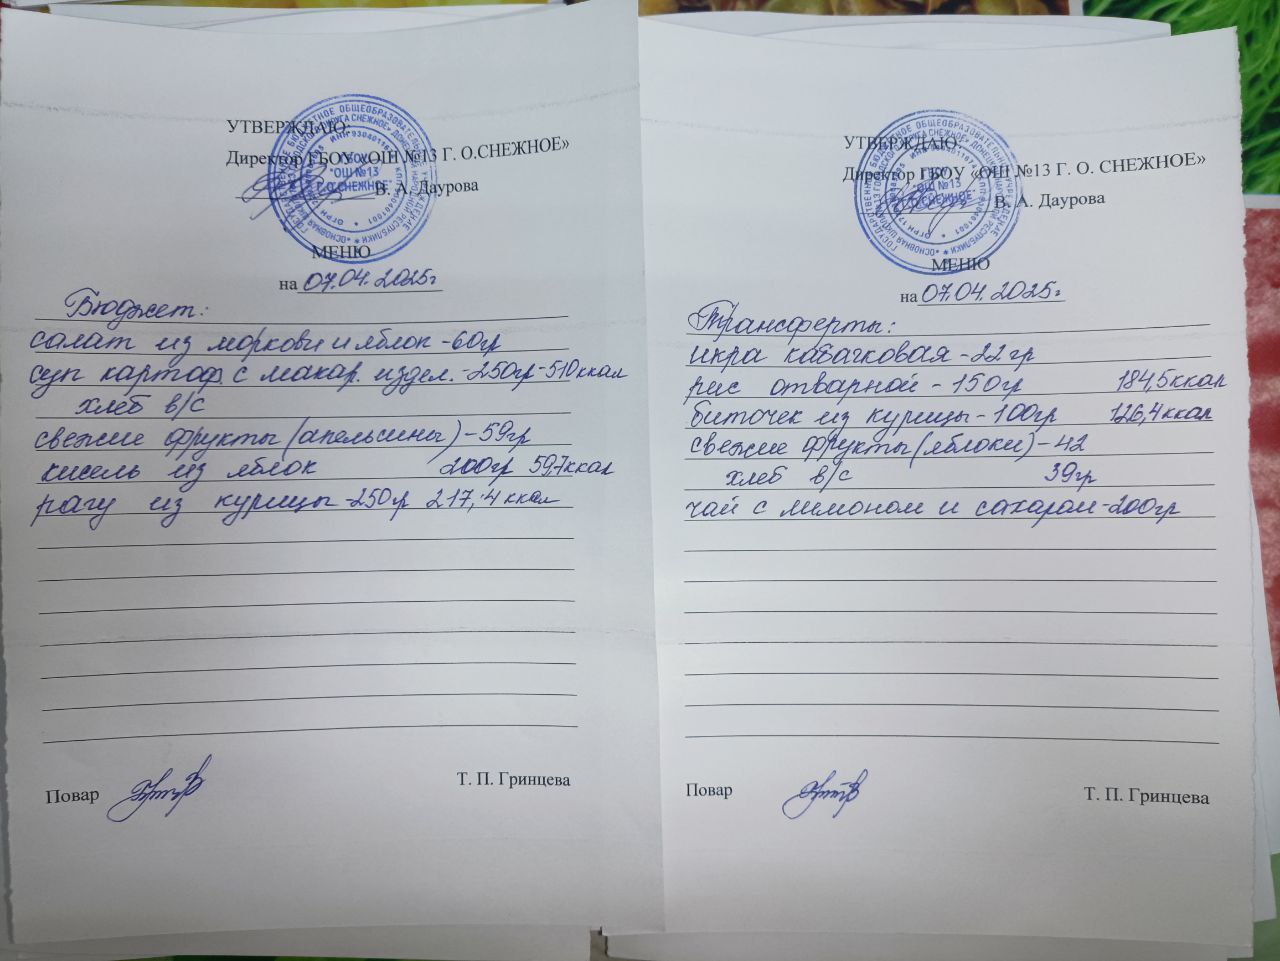 УТВЕРЖДАЮ:
Директор ГБОУ «ОШ №13 Г. О.СНЕЖНОЕ»
В. А. Даурова
МЕНЮ
на 07.04.2025г
Бюджет:
салат из моркови и яблок -60гр
суп картоф. с макар. издел.-250гр-510ккал
хлеб в/с
свежие фрукты (апельсины)-59гр
кисель из яблок 200гр 597ккал
рагу из курицы-250гр 217,4 ккал
Повар Т. П. Гринцева
УТВЕРЖДАЮ:
Директор ГБОУ «ОШ №13 Г. О. СНЕЖНОЕ»
В. А. Даурова
МЕНЮ
на 07.04.2025г
Трансферты:
икра кабачковая -22гр
рис отварной - 150гр 184,5ккал
биточек из курицы-100гр 126,4ккал
свежие фрукты(яблоки)-42
хлеб в/с 39гр
чай с лимоном и сахаром-200гр
Повар Т. П. Гринцева